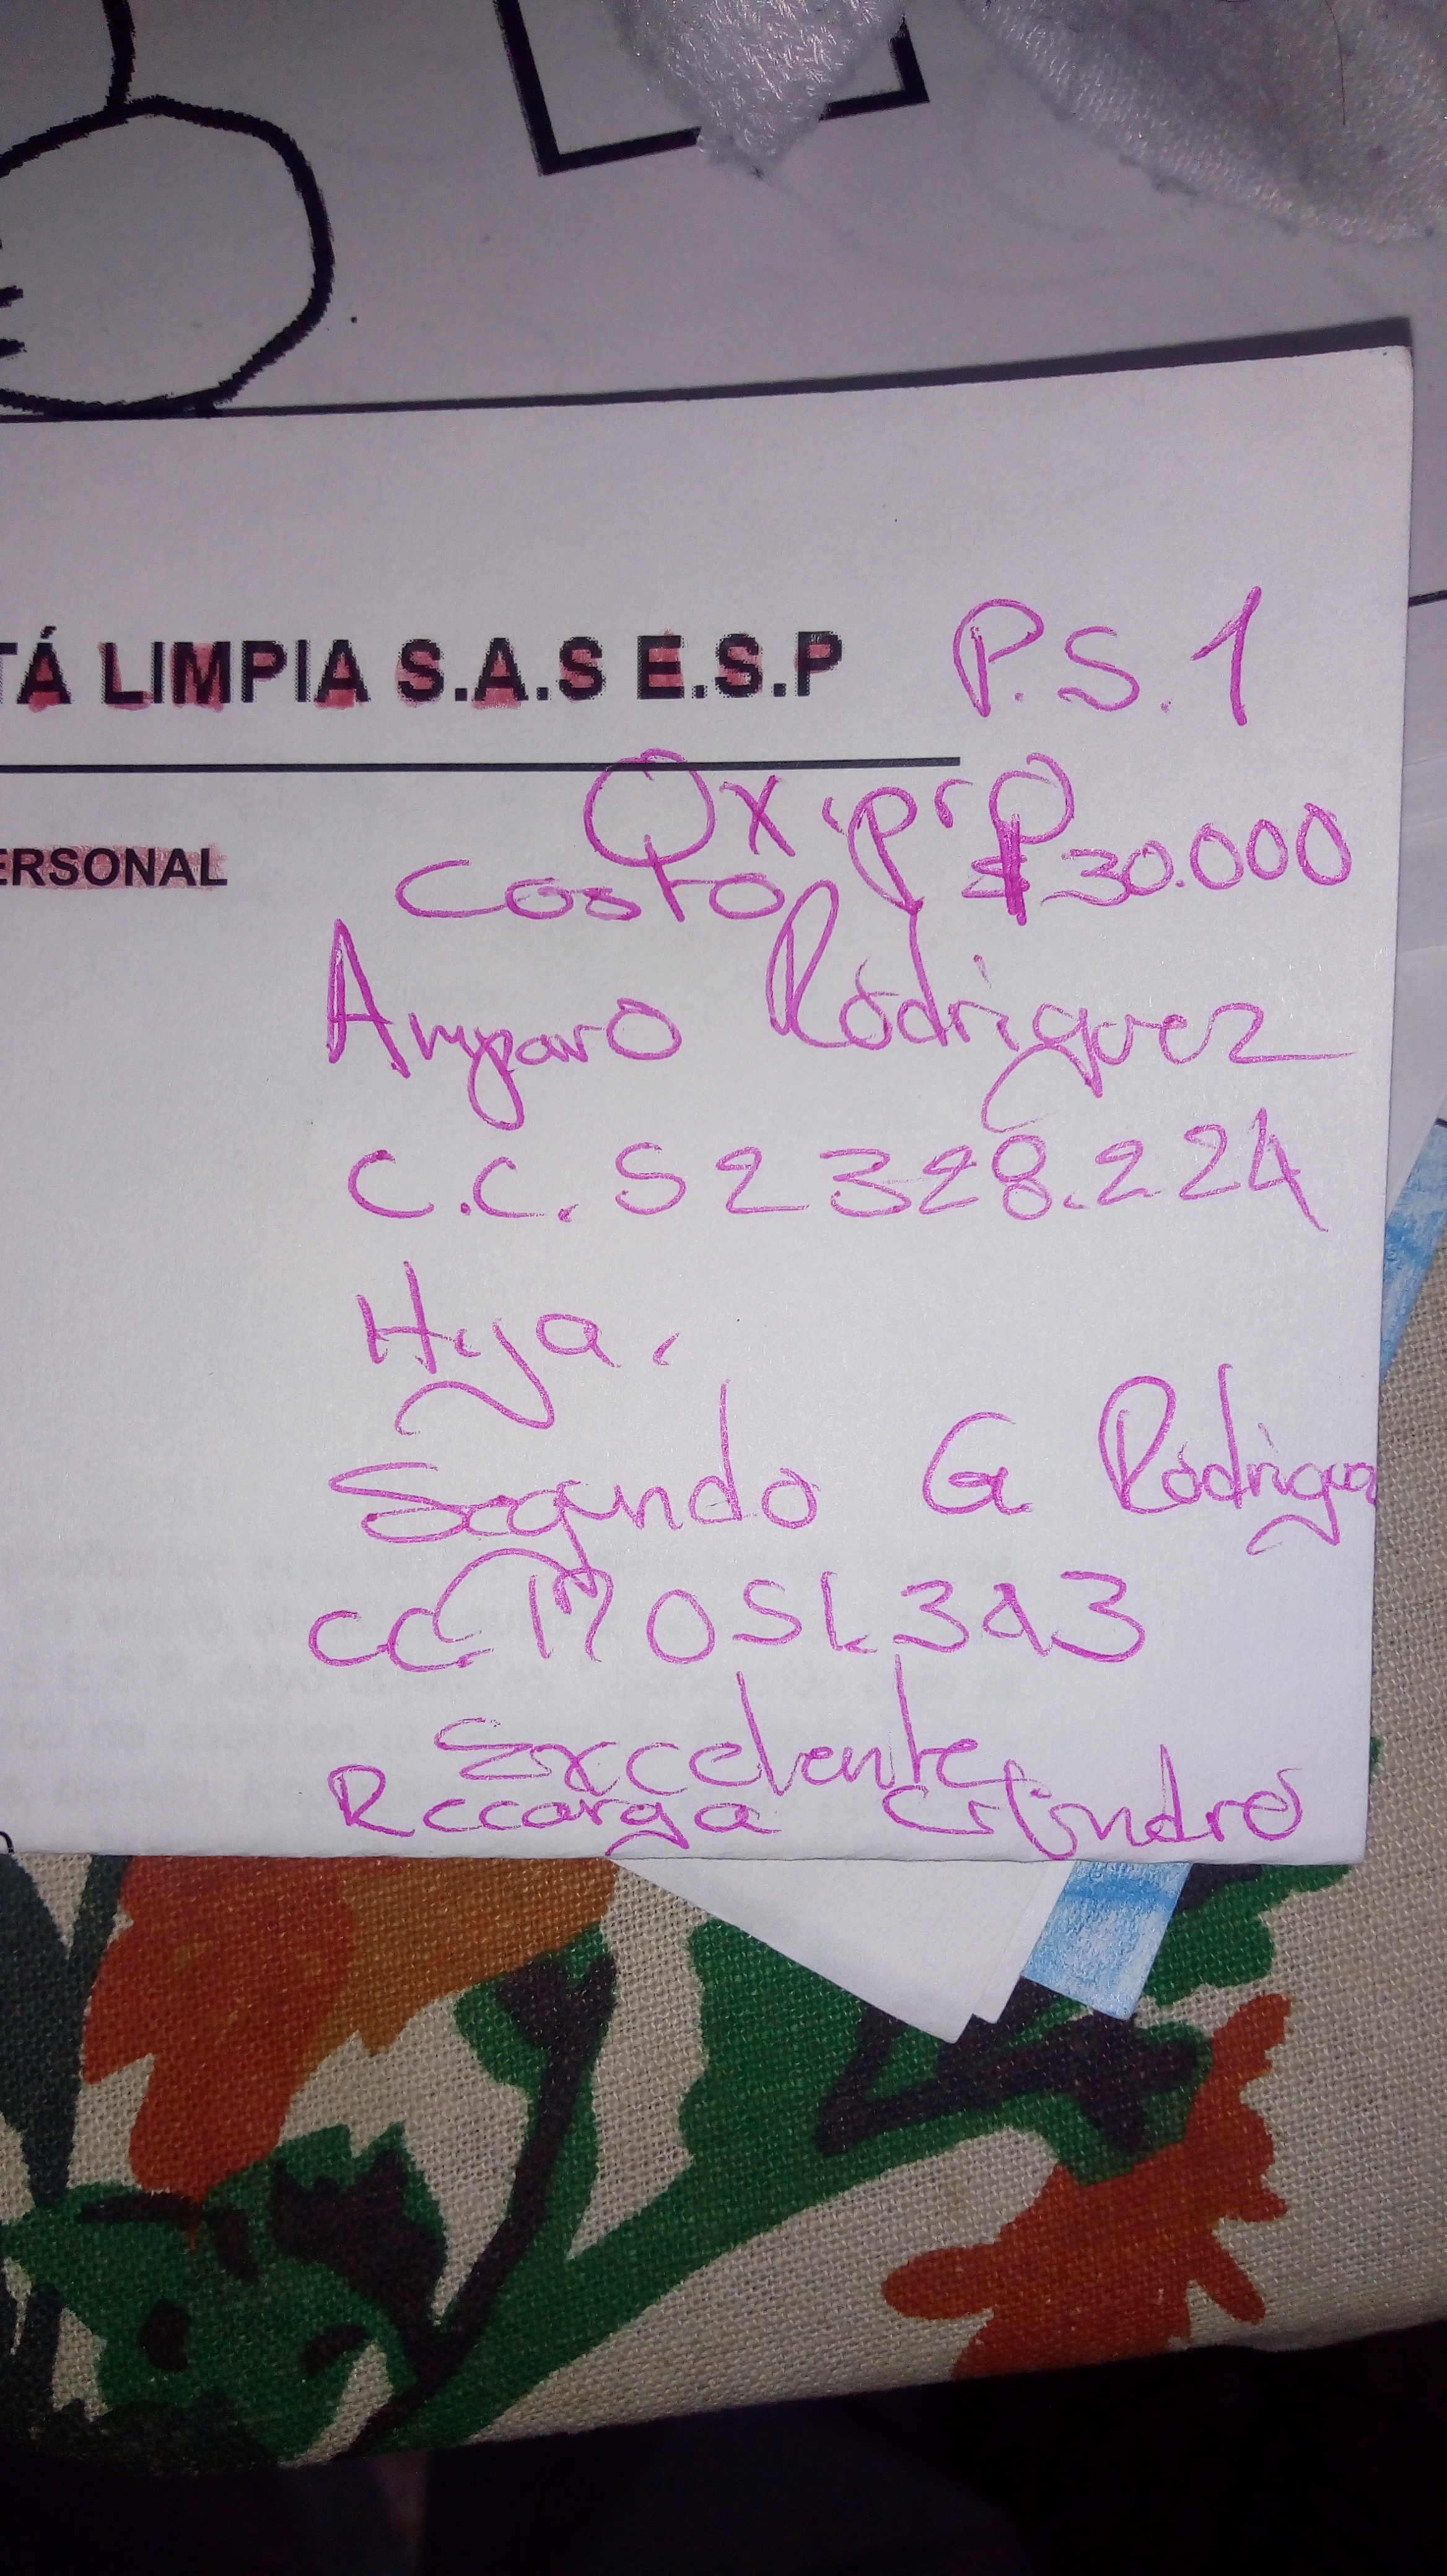 TÁ LIMPIA S.A.S E.S.P P.S.1
ERSONAL
Oxi Pro
Costo $30.000
Amparo Rodriguez
C.C. 52328.224
Hija.
Segundo G Rodrigue
CC. 17051.393
Excelente
Recarga Cilindro